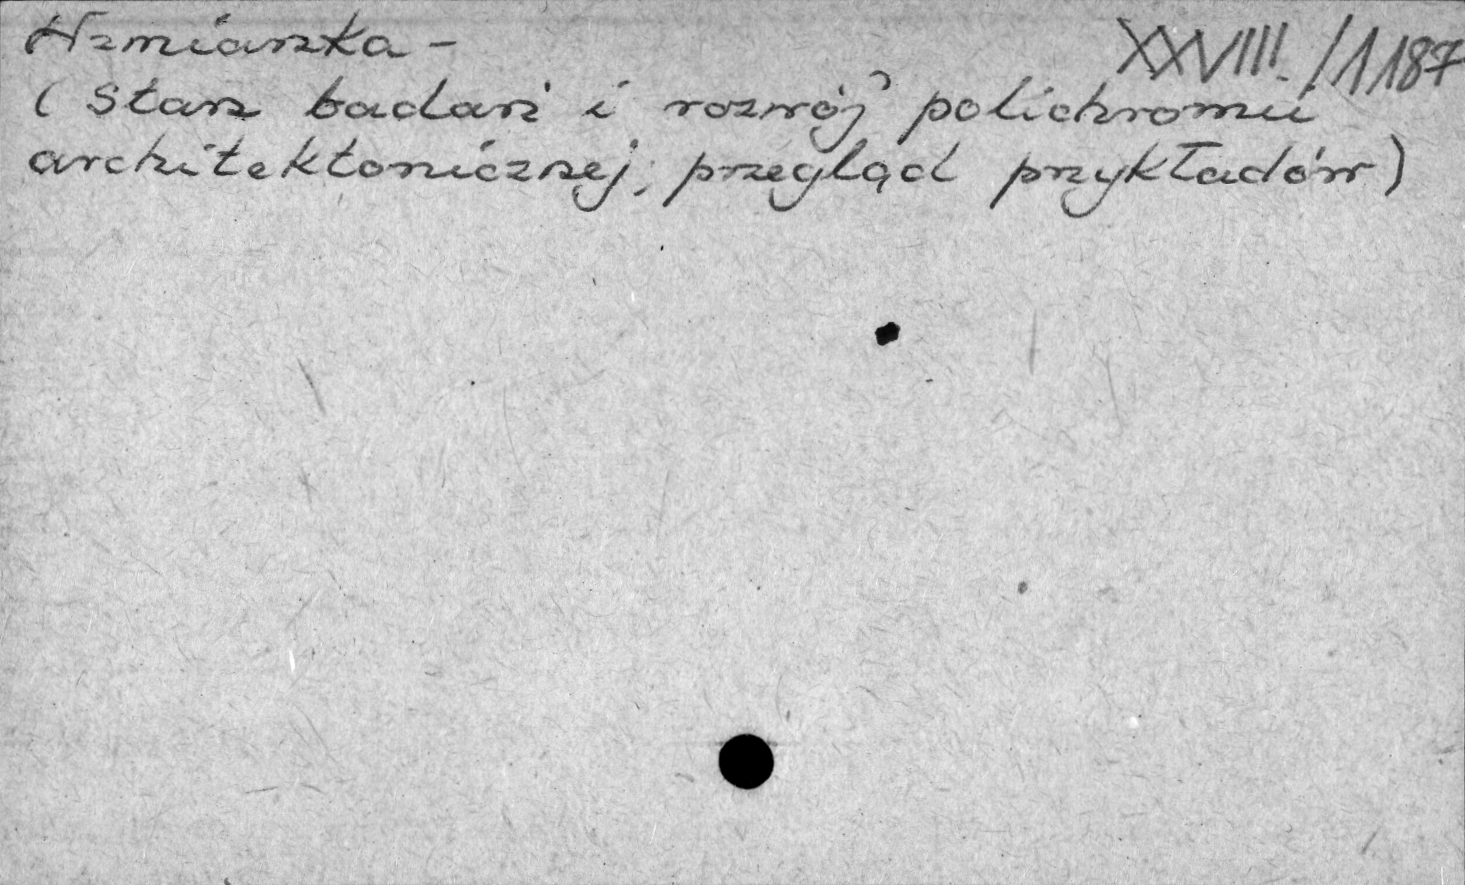 Wzmianka -
XXVIII./1187
(Stan badań i rozwój polichromii
architektonicznej; przegląd przykładów)